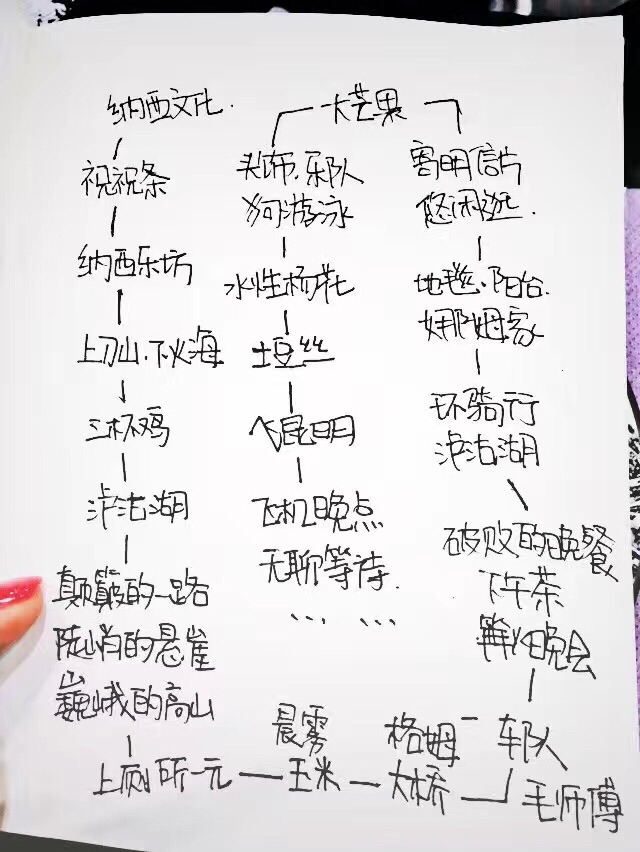 纳西文化.
祝祝条
纳西乐坊
上刀山.下火海
三杯鸡
泸沽湖
颠簸的一路
陡峭的悬崖
巍峨的高山
上厕所一元
大芒果
头饰.乐队
狗游泳
水性杨花
土豆丝
飞昆明
飞机晚点
无聊等待.
... ...
晨雾
玉米
寄明信片
悠闲逛.
地毯.阳台.
娜姆家
环骑行
泸沽湖
破败的晚餐
下午茶
篝火晚会
车队
毛师傅
格姆
大桥